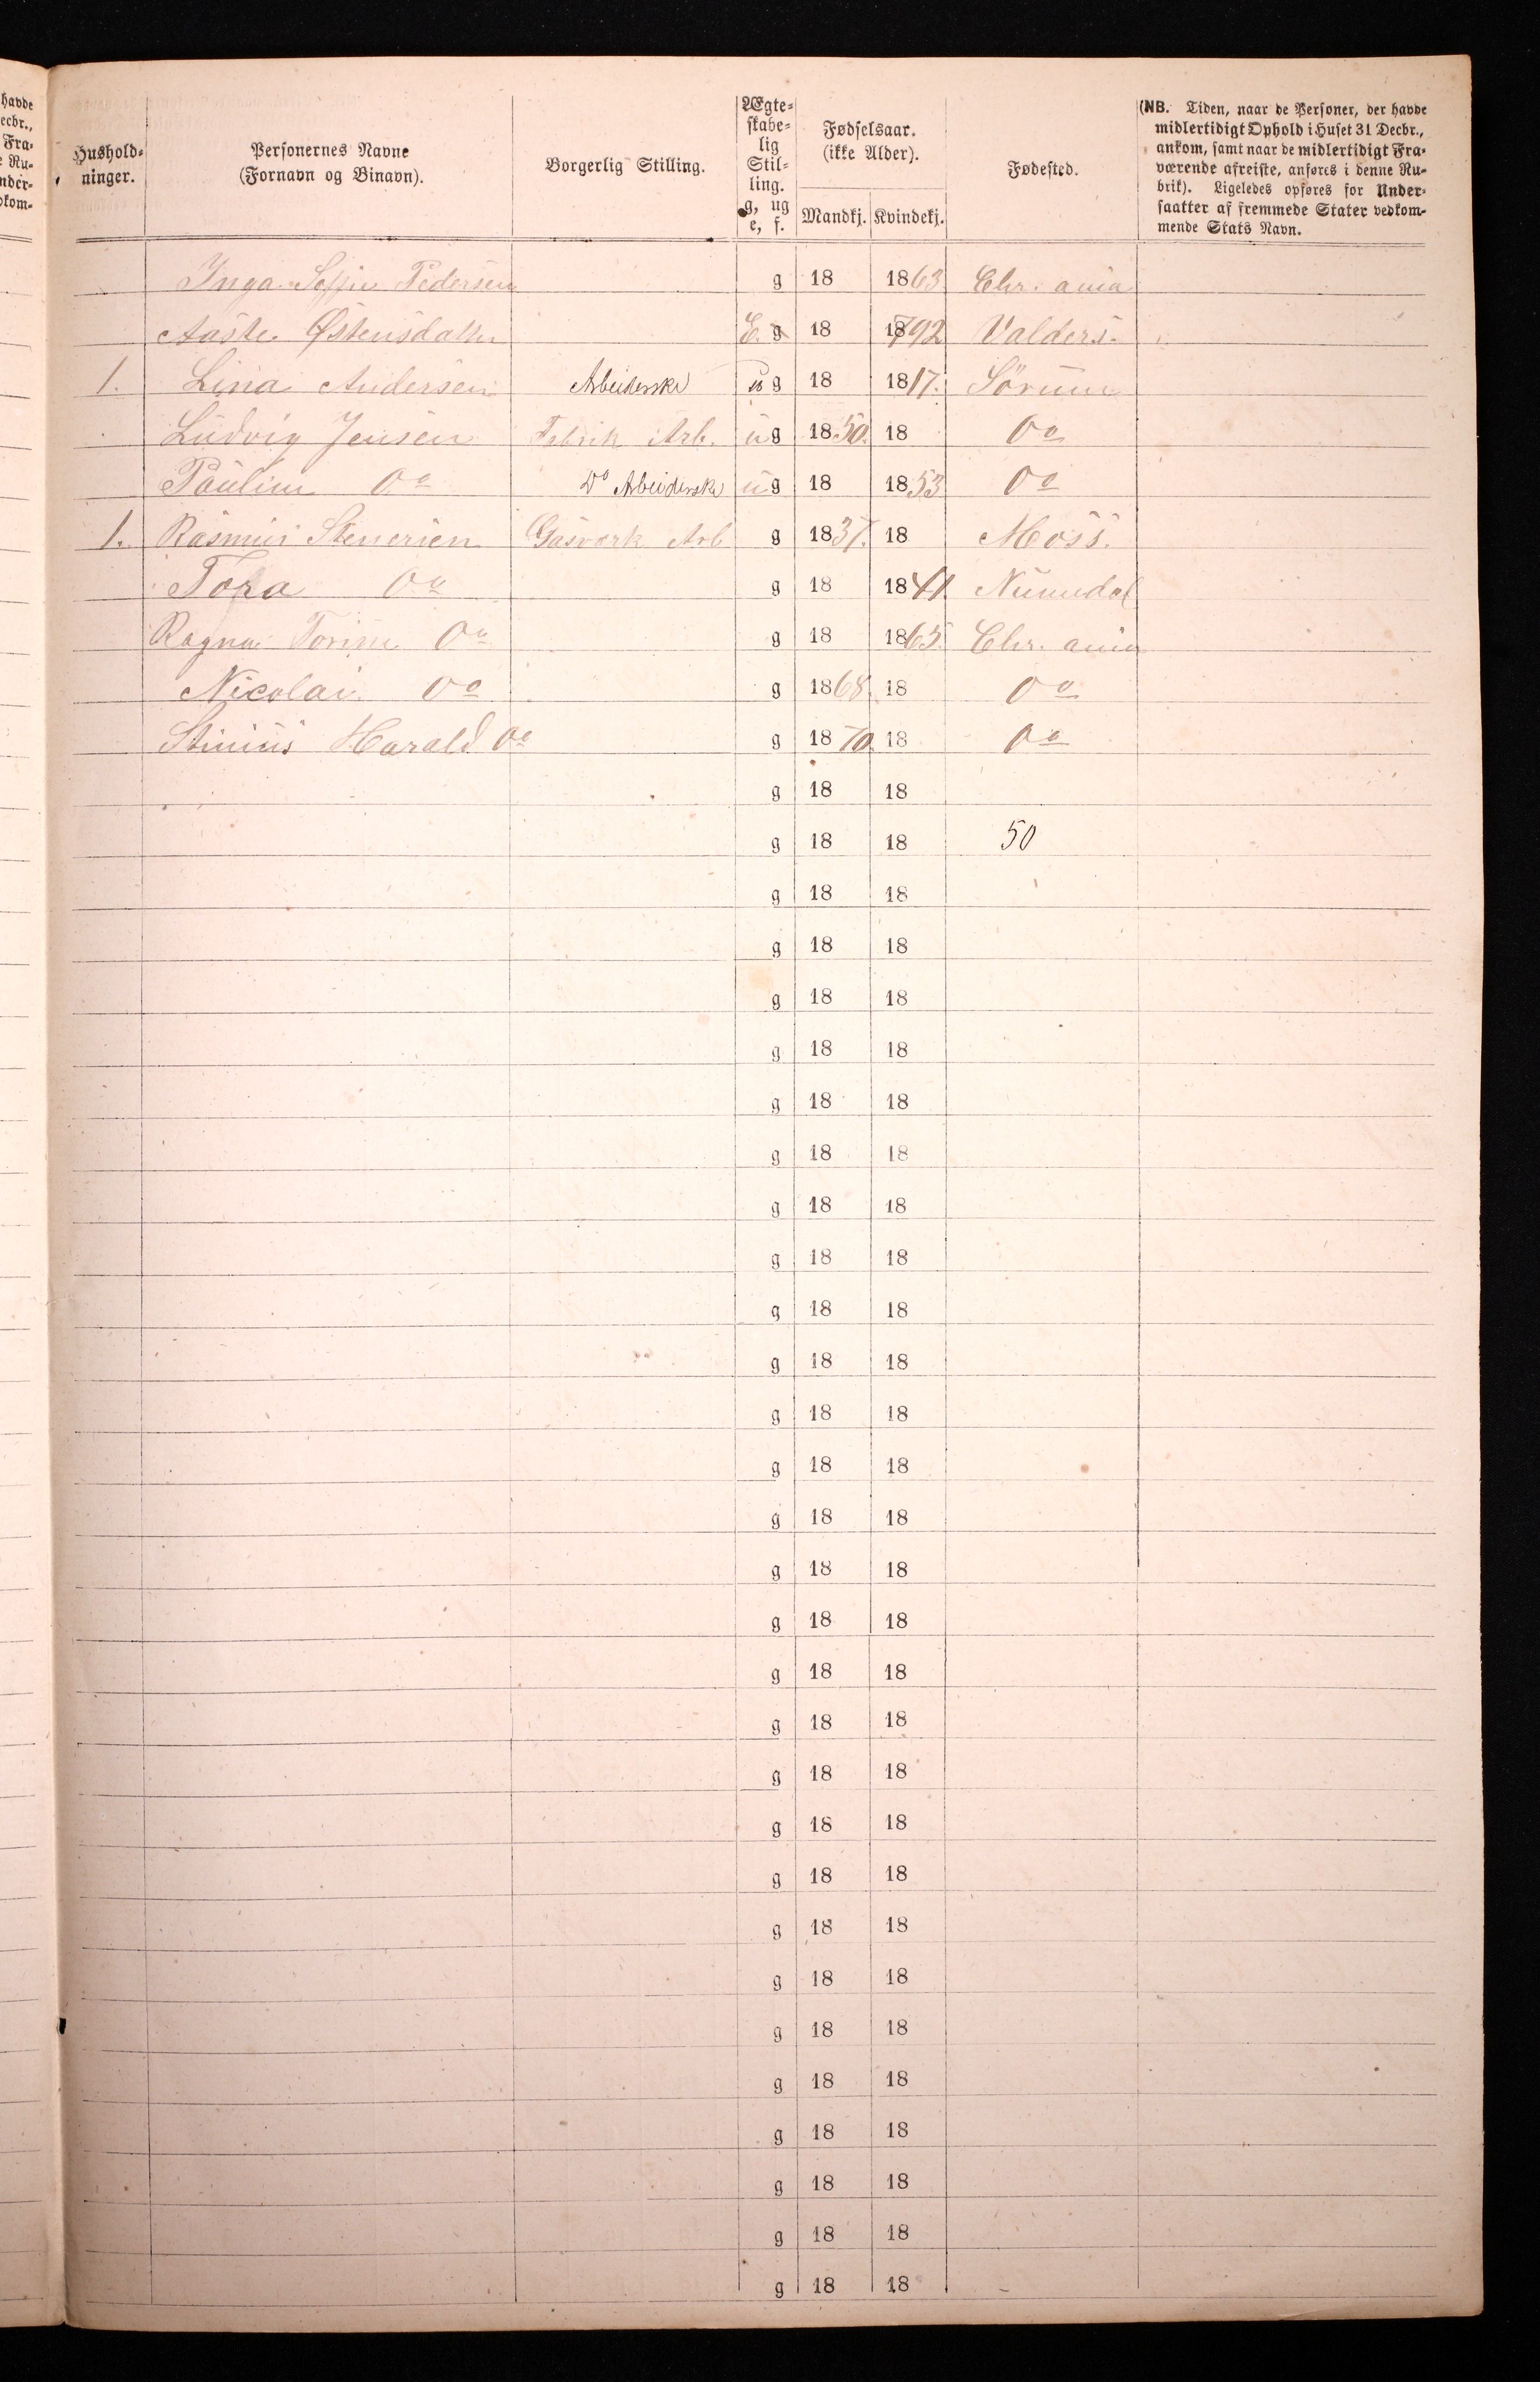 havde
ecbr.,
Fra-
e Ru-
nder-
dkom-
Hushold-
ninger.
Personernes Navne
(Fornavn og Binavn).
Borgerlig Stilling.
Ægte-
skabe-
lig
Stil-
ling.
g, ug
e, f.
Fødselsaar.
(ikke Alder).
Mandkj. Kvindekj.
Fødested.
(NB. Tiden, naar de Personer, der havde
midlertidigt Ophold i Huset 31 Decbr.,
ankom, samt naar de midlertidigt Fra-
værende afreiste, anføres i denne Ru-
brik). Ligeledes opføres for Under-
saatter af fremmede Stater vedkom-
mende Stats Navn.
Inga Pedersen g 18 1863 Chr. ania
Aaste Østensdatter E. g 18 1792 Valders.
1. Lina Andersen Arbeiderske g 18 1817. Sörum
Ludvig Jensen Fabrik Arb. ug 1850. 18 Do
Pauline Do Do Arbeiderske ug 18 1853 Do
1. Rasmus Stenersen Gasværk Arb g 1837. 18 Moss.
Tora Do g 18 1841. Numedal
Ragna Torine Do g 18 1865. Chr. ania
Nicolai Do g 1868. 18 Do
Harald Do g 1870. 18 Do
g 18 18
g 18 18 50
g 18 18
g 18 18
g 18 18
g 18 18
g 18 18
g 18 18
g 18 18
g 18 18
g 18 18
g 18 18
g 18 18
g 18 18
g 18 18
g 18 18
g 18 18
g 18 18
g 18 18
g 18 18
g 18 18
g 18 18
g 18 18
g 18 18
g 18 18
g 18 18
g 18 18
g 18 18
g 18 18
g 18 18